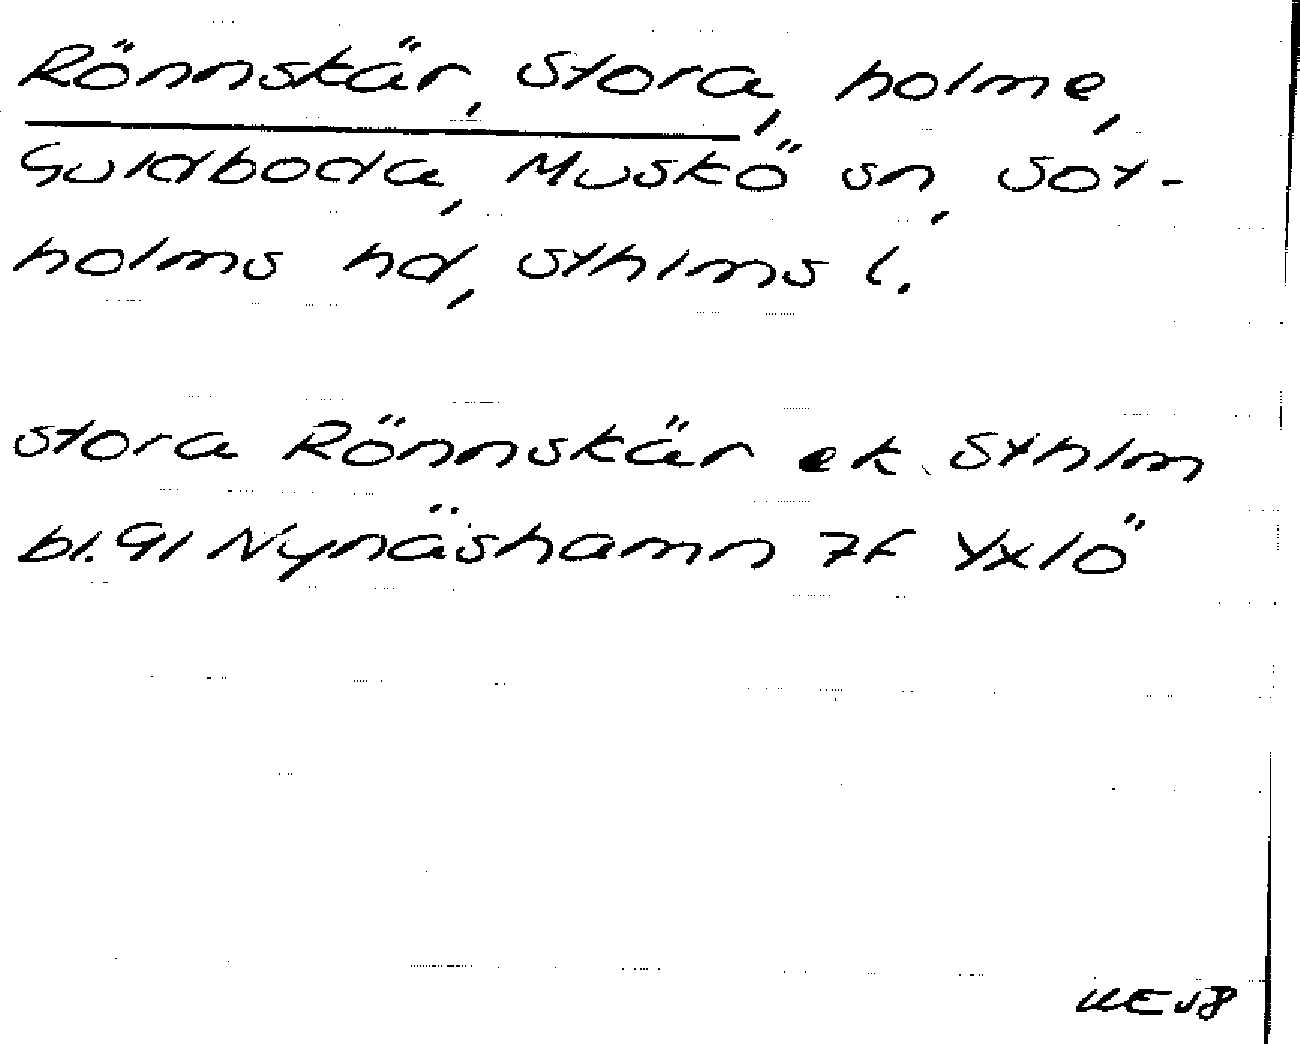 Rönnskär, Stora, holme,
Guldboda, Muskö sn, Sot-
holms hd, Sthlms l.
Stora Rönnskär ek. Sthlm
bl. 91 Nynäshamn 7f Yxlö